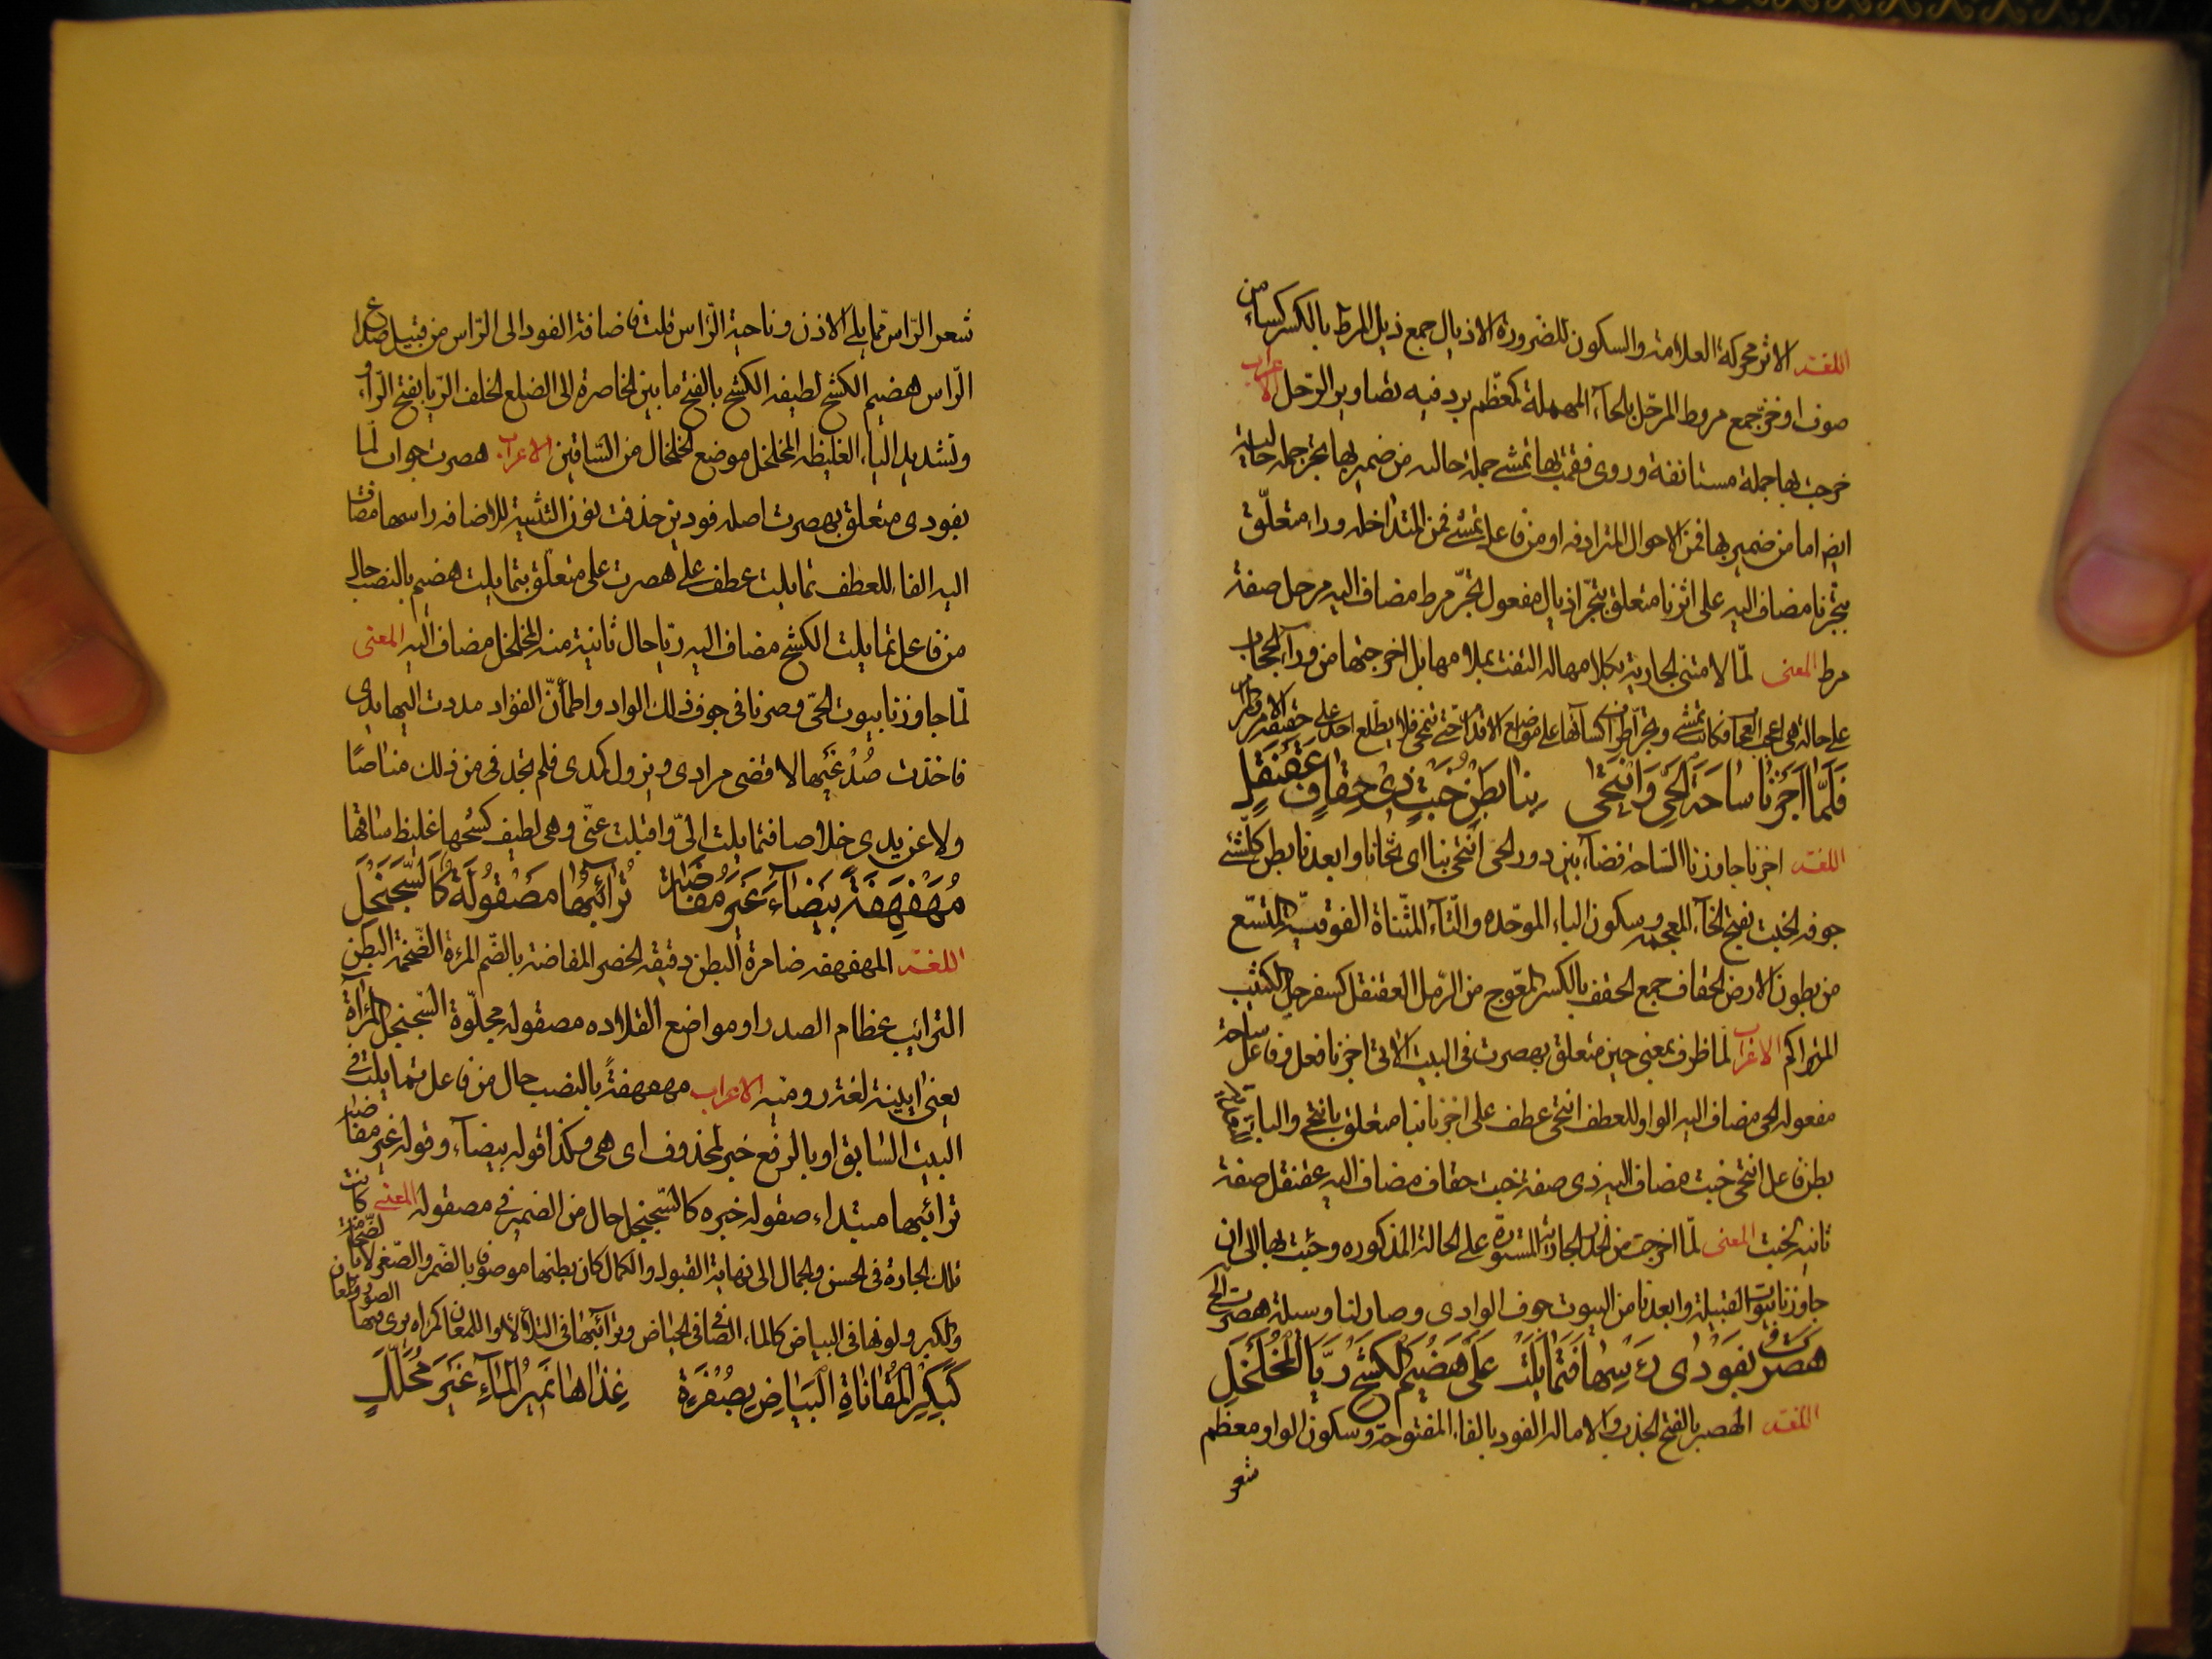 اللغة الاثر محركة العلامة والسكون للضرورة الاذيال جمع ذيل المرط بالكسر كساء من
صوف او خز جمع مروط المرحّل بالحاء المهملة كمعظّم برد فيه تصاوير الرّحل الاعراب
خرجت بها جملة مستانفة وروى فقمت بها تمشى جملة حالية من ضمير بها تجر جملة حالية
ايض اما من ضمير بها فمن الاحوال المترادفه او من فاعل تمشى فمن المتداخله وراء متعلّق
بتجرنا مضاف اليه على اثرنا متعلق بتجرّ اذيال مفعول لتجرّ مرط مضاف اليه مرحل صفة
مرط المعنى لمّا لامتنى الجارية بكلامها لم التفت بملامها بل اخرجتها من وراء الحجاب
على حالة هى اعجب العجاب فكانت تمشى وتجرّ اطراف كسائها على مواضع الاقدام حتى تنمحى فلا يطّلع احد على حقيقة الامر
فَلَمَّا اَجَزْنَا سَاحَةَ الحَىِّ وَانْتَحٰى بِنَا بَطْنُ خَبْتٍ ذى حِقَافٍ عَقَنْقَلٍ
اللغة اجزنا جاوزنا السّاحة فضاء بين دور الحىّ انتحى بنا اى نحانا وابعدنا بطن كلّ شئ
جوفه الخبت بفتح الخاء المعجمه وسكون الباء الموحّده والتّاء المثنّاة الفوقيّة المتسّع
من بطون الارض الحقاف جمع الحقف بالكسر المعوّج من الرّمل العقنقل كسفرجل الكثيب
المتراكم الاعراب لمّا ظرف بمعنى حين متعلق بهصرت فى البيت الاتى اجزنا فعل وفاعل ساحة
مفعوله الحى مضاف اليه الواو للعطف انتحى عطف على اجزنا بنا متعلق بانتحى والباء
بطن فاعل انتحى خبت مضاف اليه ذى صفة خبت حقاف مضاف اليه عقنقل صفة
ثانية لخبت المعنى لمّا اخرجت من الخدر الجارية المستورة على الحالة المذكوره وجئت بها الى ان
جاوزنا بيوت القبيلة وابعدنا من البيوت جوف الوادى وصار لنا وسيلة هصرت الخ
هَصَرْتُ بِفَوْدَىْ رَءْسِهَا فَتَمَايَلَتْ عَلَىَّ هَضِيْمَ الكَشْحِ رَيَّا الْمُخَلْخَلِ
اللغة الهصر بالفتح الجذب والامالة الفود بالفاء المفتوحة وسكون الواو معظم
شعر
شعر الرّاس ممّا يلى الاذن وناحية الرّاس قلت فاضافة الفود الى الرّاس من قبيل صداع
الرّاس هضيم الكشح لطيفه الكشح بالفتح ما بين الخاصرة الى الضلع الخلف الرّيا بفتح الرّاء و
وتشديد الياء الغليظه المخلخل موضع الخلخال من السّاقين الاعراب هصرت جواب لمّا
بفودى متعلق بهصرت اصله فودين حذفت نون التثنية للاضافه راسها مضاف
اليه الفاء للعطف تمايلت عطف على هصرت علىّ متعلّق بتمايلت هضيم بالنصب حال
من فاعل تمايلت الكشح مضاف اليه ريّا حال ثانية منه المخلخل مضاف اليه المعنى
لمّا جاوزنا بيوت الحىّ وصرنا فى جوف ذلك الواد واطمأنّ الفؤاد مددت اليها يدى
فاخذت صُدْغَيْها لاقضى مرادى ويزول كمدى فلم تجد فى من ذلك مناصًا
ولا عن يدى خلاصا فتمايلت الىّ واقبلت عنّى وهى لطيف كشحها غليظ ساقها
مُهَفْهَفَةً بَيْضَاءَ غَيْرَ مُفَاضَةٍ تَرَائِبُهَا مَصْقُوْلَةٌ كَالسَّجَنْجَلِ
اللغة المهفهفه ضامرة البطن دقيقة الخصر المفاضة بالضّم المرءة الضّخمة البطن
الترائب عظام الصدر او مواضع القلاده مصقوله مجلّوة السّجنجل المرأة
يعنى ايينة لغة روميه الاعراب مهفهفةً بالنصب حال من فاعل تمايلت فى
البيت السّابق او بالرفع خبر لمحذوف اى هى وكذا قوله بيضاء وقوله غير مفاضة
ترائبها مبتداء مصقوله خبره كالسّجنجل حال من الضمير فى مصقوله المعنى كانت
تلك الجارة فى الحسن والجمال الى نهاية القبول والكمال كان بطنها موصوفا بالضّمر والصّغر لا بالضّخامة
والكبر ولونها فى البياض كالماء الصّافى فى الحياض وترائبها فى التلألأ واللمعان كمراة يرى فيها الصور
كَبِكْرِ الْمُقَانَاةِ الْبَيَاضِ بِصُفْرَةٍ غِذَاهَا نَمِيْرُ الْمَاءِ غَيْرَ مُحَلَّلٍ